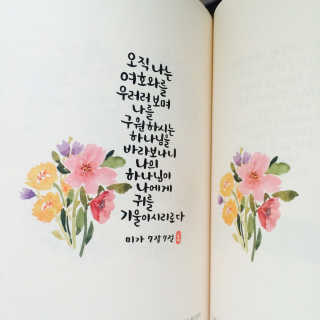 오직 나는
여호와를
우러러보며
나를
구원하시는
하나님을
바라보나니
나의
하나님이
나에게
귀를
기울이시리로다
미가 7장 7절